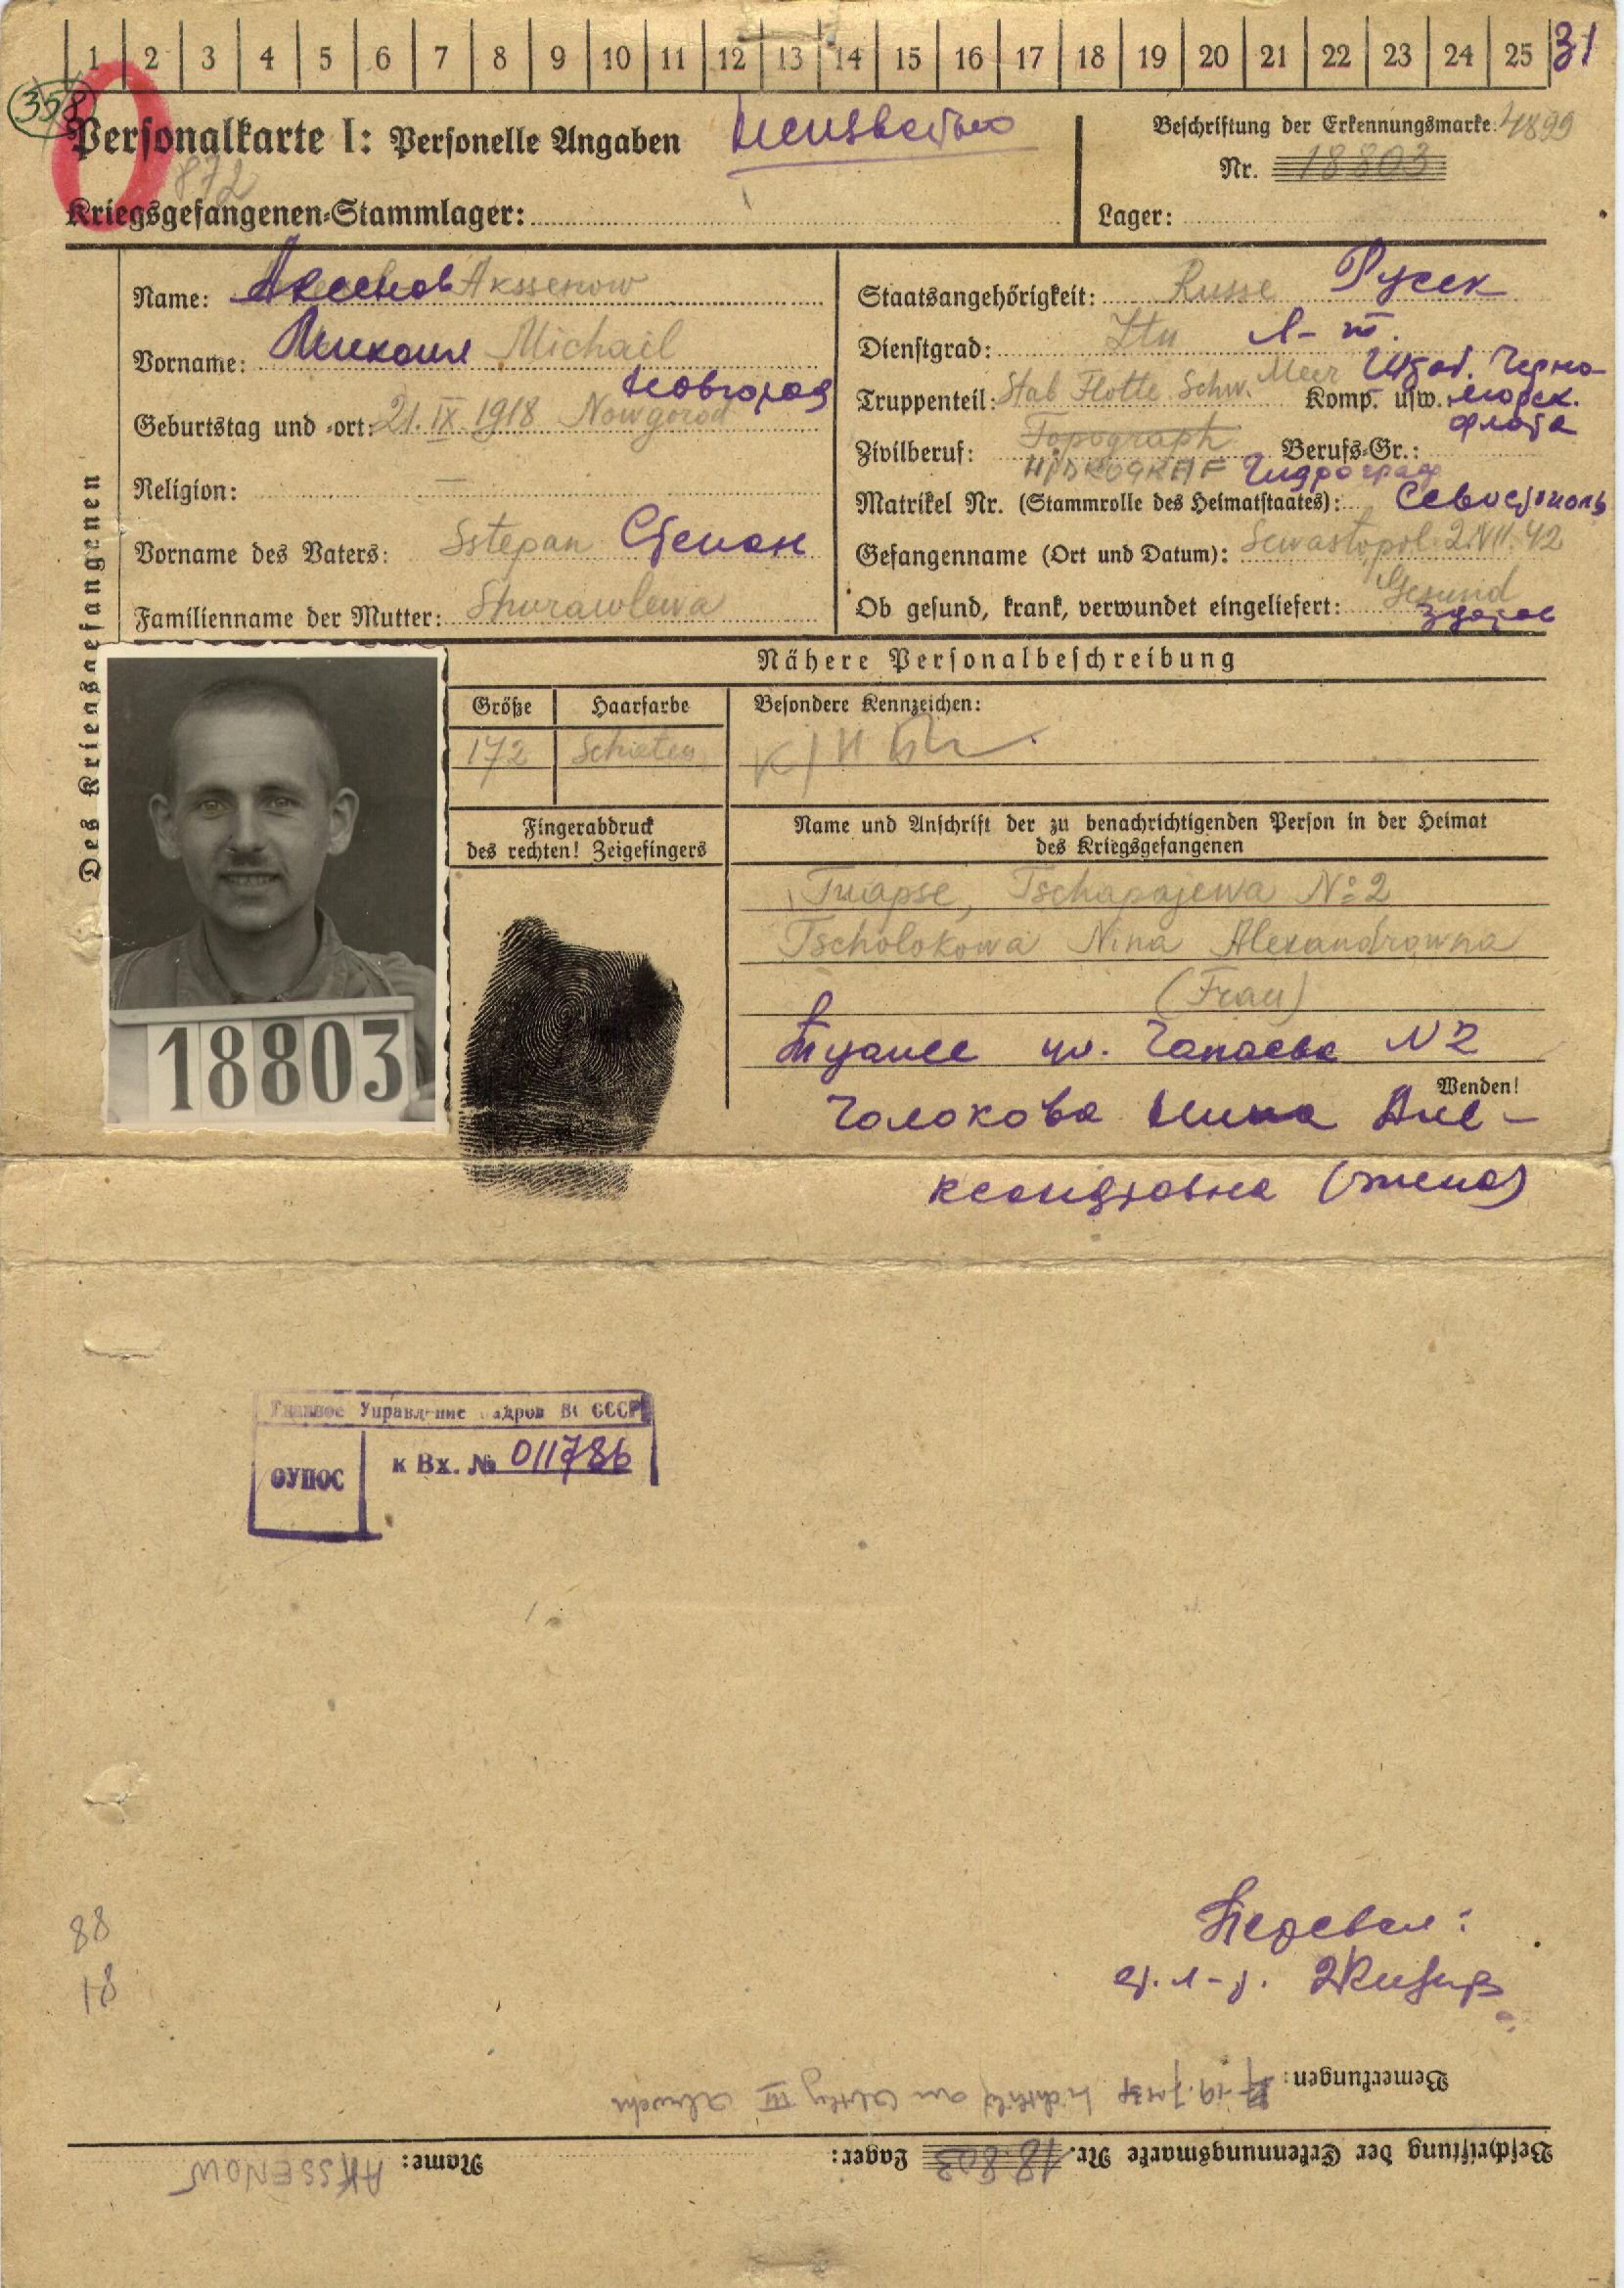 1 2 3 4 5 6 7 8 9 10 11 12 13 14 15 16 17 18 19 20 21 22 23 24 25 31
358
Personalkarte I: Personelle Angaben
Beschriftung der Erkennungsmarke 4899
Nr. 18803
872
Kriegsgefangenen-Stammlager:
Lager:
Des Kriegsgefangenen
Name: Аксенов Akssenow
Vorname: Михаил Michail
Новгород
Geburtstag und -ort: 21. IX. 1918 Nowgorod
Religion: —
Vorname des Vaters: Sstepan Степан
Familienname der Mutter: Shurawlewa
Staatsangehörigkeit: Russe Русск
Dienstgrad: Ltn Л-т.
Truppenteil: Stab Flotte Schw. Meer Штаб. Черно-
Komp. usw.: морск.
флота
Zivilberuf: Topograph Berufs-Gr.:
HIDROGRAF Гидрограф
Matrikel Nr. (Stammrolle des Heimatstaates): Севастополь
Gefangenname (Ort und Datum): Sewastopol 2.VII.42
Ob gesund, krank, verwundet eingeliefert: Gesund
здоров
Nähere Personalbeschreibung
Größe Haarfarbe Besondere Kennzeichen:
172
Fingerabdruck
des rechten! Zeigefingers
Name und Anschrift der zu benachrichtigenden Person in der Heimat
des Kriegsgefangenen
Tuapse, Tschapajewa №2
Tscholokowa Nina Alexandrowna
(Frau)
Туапсе ул. Чапаева N2
Wenden!
Чолокова Нина Але-
ксандровна (жена)
18803
Главное Управление Кадров ВС СССР
ОУПОС
к Вх. № 011786
88
18
Перевел:
ст. л-т.
Bemerkungen:
Beschriftung der Erkennungsmarke Nr. 18803 Lager: Name: AKSSENOW